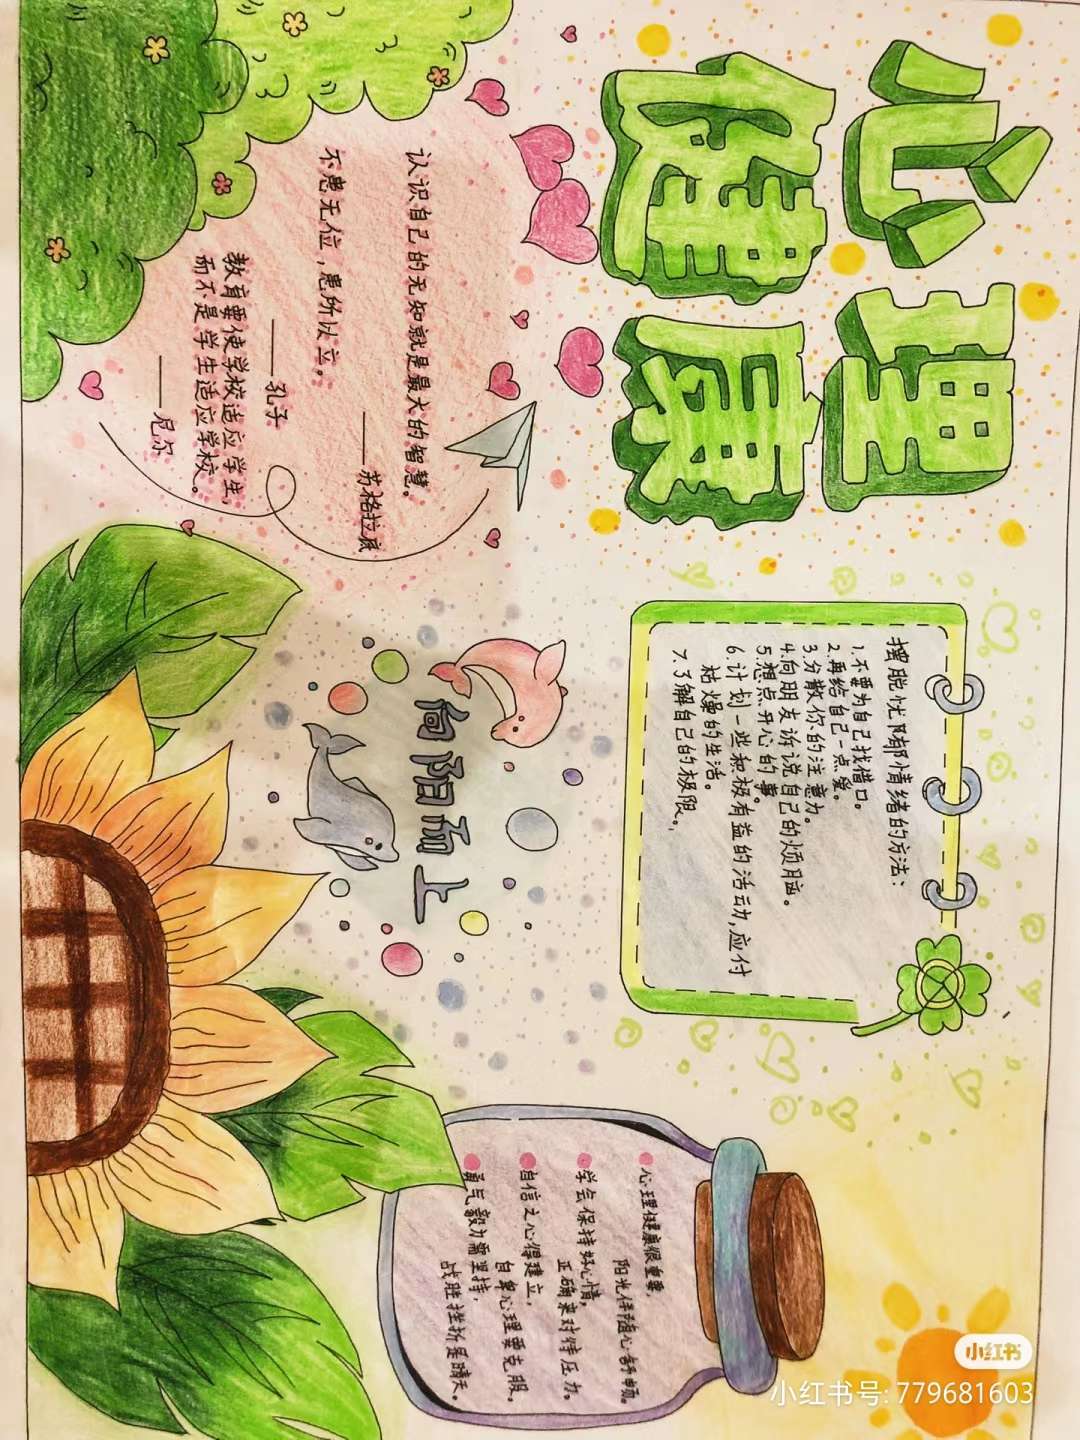 心理
健康
认识自己的无知就是最大的智慧。
——苏格拉底
不患无位,患所以立。
——孔子
教育要使学校适应学生,
而不是学生适应学校。
——尼尔
摆脱忧郁情绪的方法:
1.不要为自己找借口。
2.再给自己一点爱。
3.分散你的注意力。
4.向朋友诉说自己的烦恼。
5.想点开心的事。
6.计划一些积极有益的活动,应付
枯燥的生活。
7.了解自己的极限。
向阳而上
心理健康很重要,
阳光伴随心舒畅。
学会保持好心情,
正确来对待压力。
自信之心得建立,
自卑心理要克服,
勇气毅力需坚持,
战胜挫折是晴天。
小红书
小红书号:779681603